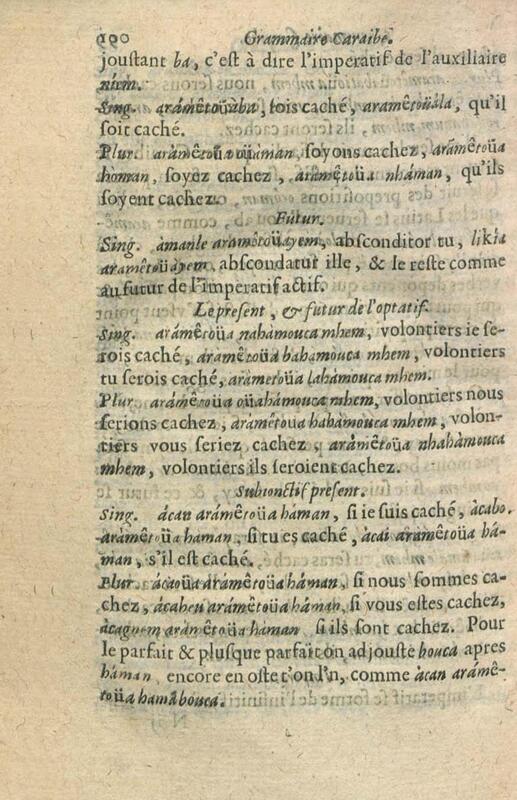 100 Grammaire Caraibe.
joustant ba, c'est à dire l'imperatif de l'auxiliaire
niem.
Sing. arámêtoüába, sois caché, aramêtoüála, qu'il
soit caché.
Plur. arámêtoüa oüáman, soyons cachez, arámêtoüa
homan, soyez cachez, arámêtoüa nháman, qu'ils
soyent cachez.
Futur.
Sing. amanle arámêtoüayem, absconditor tu, likia
aramêtoüayem, abscondatur ille, & le reste comme
au futur de l'imperatif actif.
Le present, & futur de l'optatif.
Sing. arámêtoüa nahámouca mhem, volontiers ie se-
rois caché, arámêtoüa bahamouca mhem, volontiers
tu serois caché, arametoüa lahámouca mhem.
Plur. arámêtoüa oüahámouca mhem, volontiers nous
serions cachez, arámêtoua hahámouca mhem, volon-
tiers vous seriez cachez, arámêtoüa nhahámouca
mhem, volontiers ils seroient cachez.
Subionctif present.
Sing. ácan arámêtoüa háman, si ie suis caché, àcabo.
arámêtoüa haman, si tu es caché, àcai arámêtoüa há-
man, s'il est caché.
Plur. ácaoüa arámêtoüa háman, si nous sommes ca-
chez, ácaheu arámêtoüa háman, si vous estes cachez,
àcagnem arámêtoüa haman si ils sont cachez. Pour
le parfait & plusque parfait on adjouste bouca apres
háman, encore en oste t'on l'n, comme àcan arámê-
toüa hamábouca.